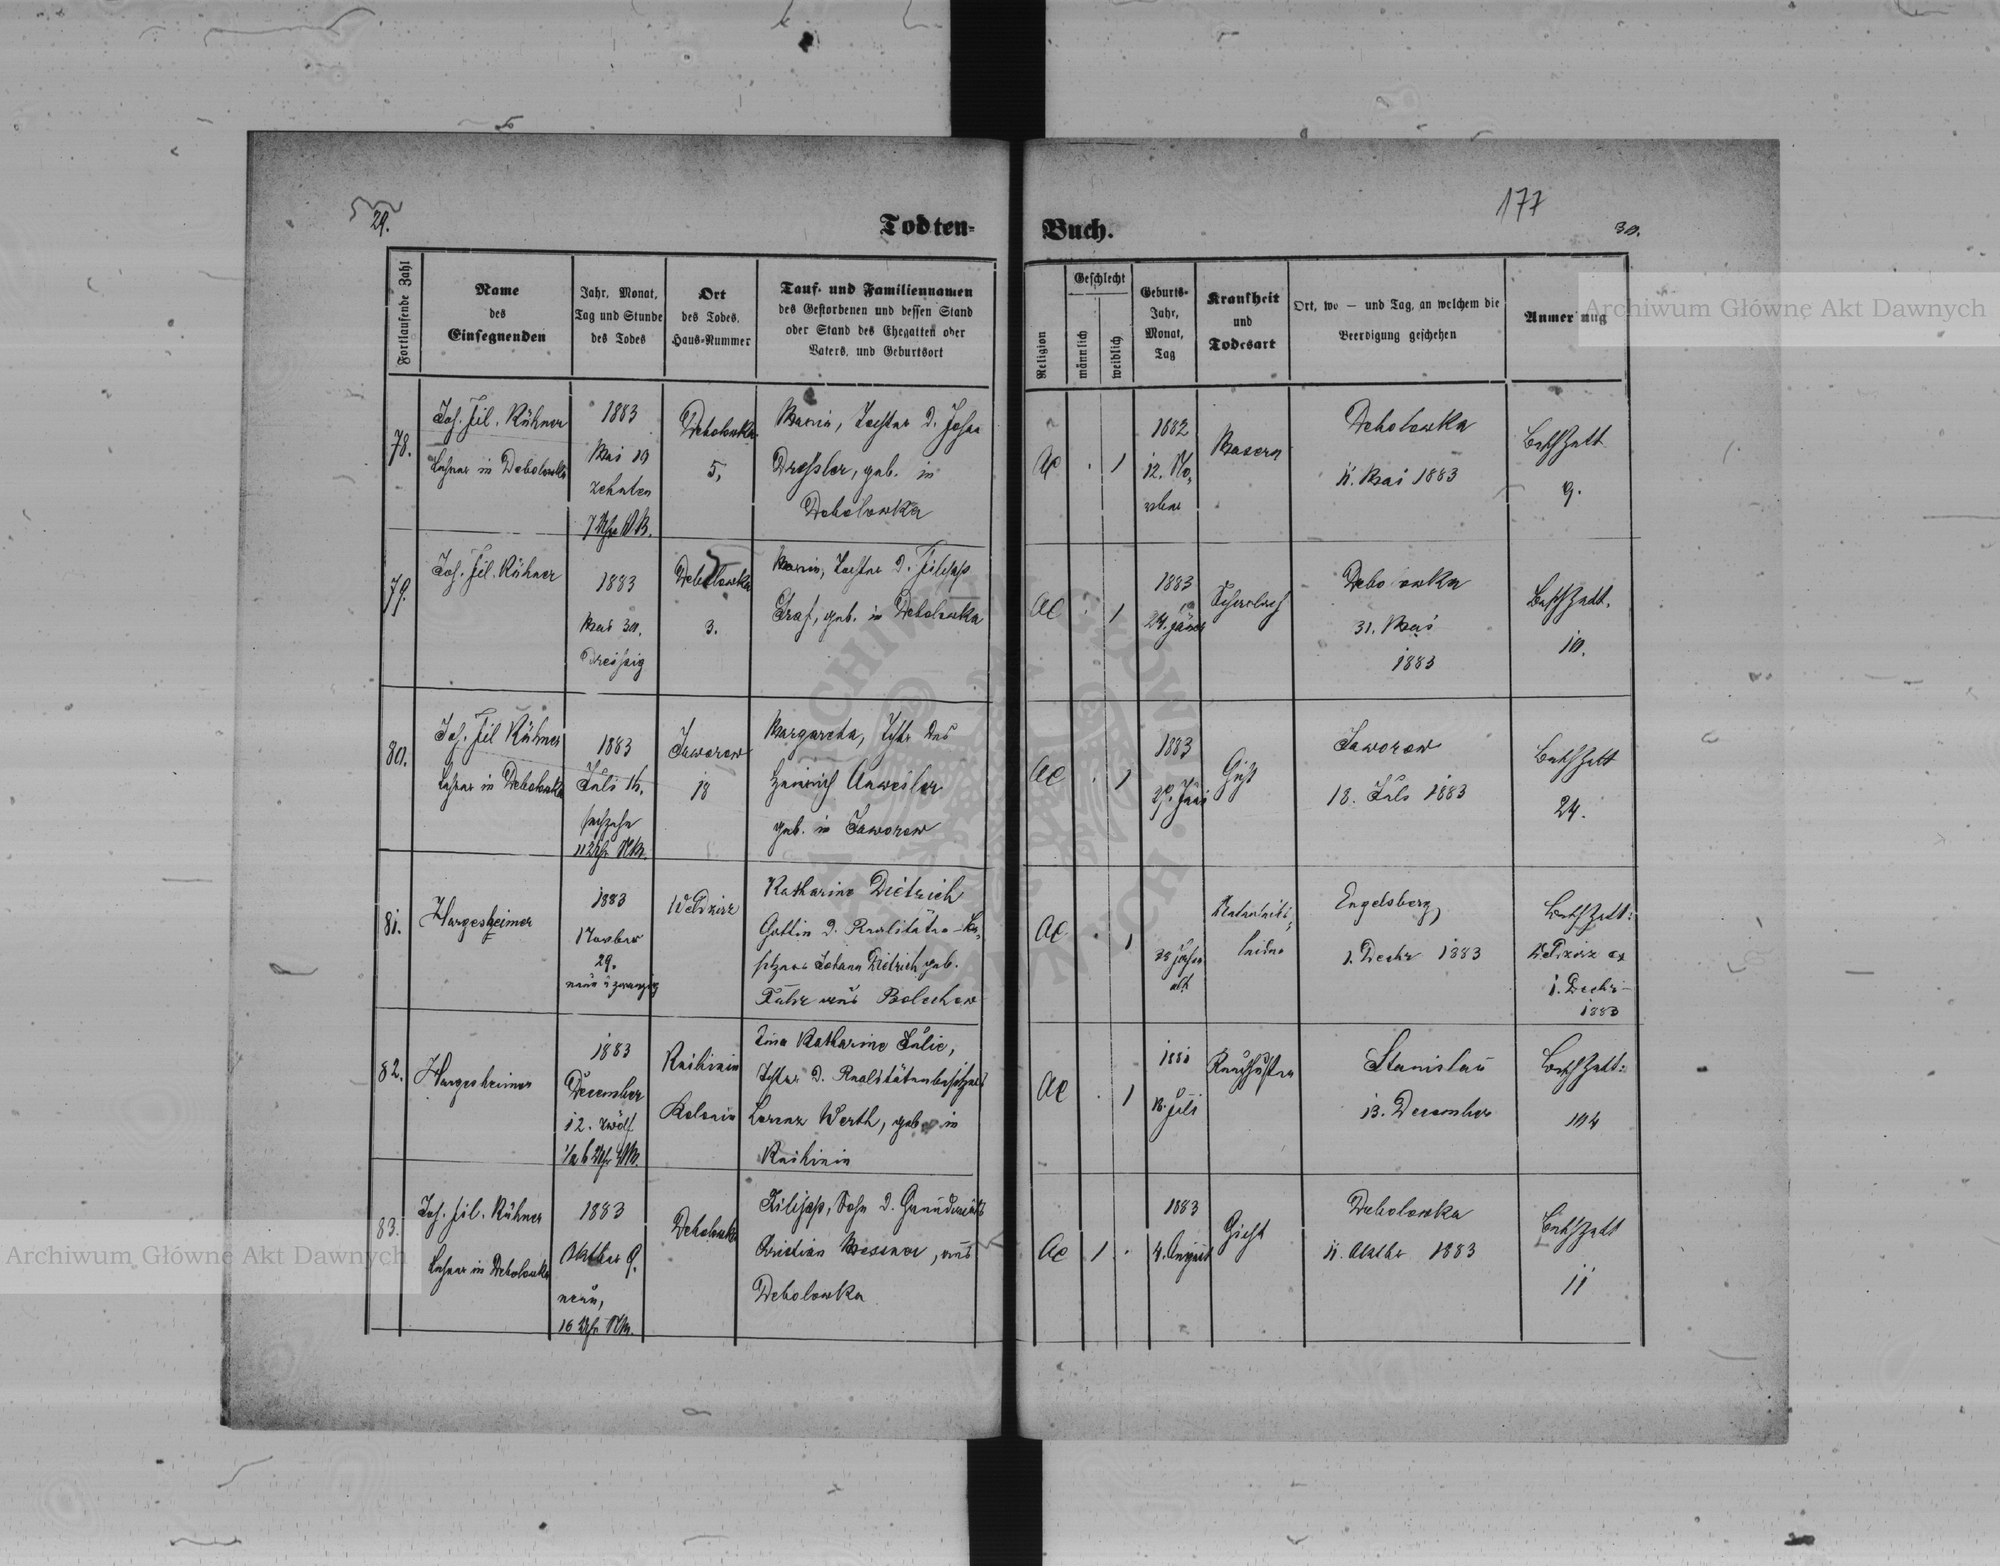 177
29.
Todten-
Buch.
30.
Fortlaufende Zahl
Name
des
Einsegnenden
Jahr, Monat,
Tag und Stunde
des Todes
Ort
des Todes,
Haus-Nummer
Tauf- und Familiennamen
des Gestorbenen und dessen Stand
oder Stand des Ehegatten oder
Vaters, und Geburtsort
Religion
Geschlecht
männlich
weiblich
Geburts-
Jahr,
Monat,
Tag
Krankheit
und
Todesart
Ort, wo — und Tag, an welchem die
Beerdigung geschehen
Anmer ung
78.
Joh. Fil. Kühner
Lehrer in Debolowka
1883
Mai 10
zehnten
7 Uhr VM.
Debolowka
5,
Maria, Tochter d. Johan
Dressler, geb. in
Debolowka
AC
1
1882
12. No-
vber
Masern
Debolowka
11. Mai 1883
9.
79.
Joh. Fil. Kühner
1883
Mai 30.
Dreissig
Debolowka
3.
Maria, Tochter d. Filipp
Graf, geb. in Debolowka
AC
1
1883
24. Jäner
Debo owka
31. Mai
1883
10.
80.
Joh. Fil Kühner
Lehrer in Debolowka
1883
Juli 16.
sechzehn
11 Uhr NM.
Jaworow
18
Margaretha, Tochter des
Heinrich Anweiler
geb. in Jaworow
AC
1
1883
Juni
Gicht
Jaworow
18. Juli 1883
24.
81.
Hargesheimer
1883
Novber
29.
neun u zwanzig
Weldzirz
Katharine Dietrich
Gattin d. Realitäten-Be-
sitzers Johann Dietrich geb.
Fuhr aus Bolechow
AC
1
Jahre
alt
Engelsberg,
1. Decbr 1883
Weldzirz
1. Decbr
1883
82.
Hargesheimer
1883
December
12. zwölf
1/2 6 Uhr
Knihinin
Kolonie
Katharine Julie,
Tochter d. Realitätenbesitzers
Lorenz Werth, geb. in
Knihinin
AC
1
Juli
Keuchhusten
Stanislau
13. December
104
83.
Joh. Fil. Kühner
Lehrer in Debolowka
1883
Oktber 9.
neun,
10 Uhr NM.
Debolowka
Filipp, Sohn d. Grundwirts
Christian Messner, aus
Debolowka
AC
1
1883
4. August
Gicht
Debolowka
11. Oktbr 1883
11
Archiwum Główne Akt Dawnych
Archiwum Główne Akt Dawnych